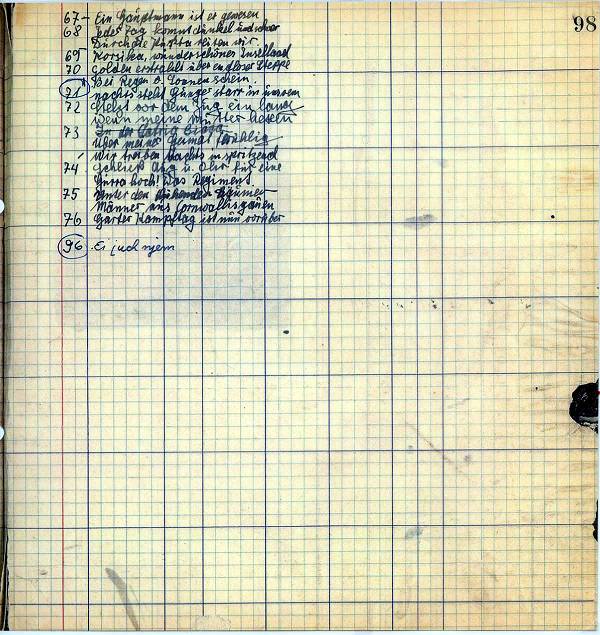 98
67- Ein Hauptmann ist er gewesen
68 Jeder Tag kommt dunkel und schwer
Durch die Puszta reiten wir
69 Korsika, wunderschönes Inselland
70 Golden erstrahlt über endloser Steppe
Bei Regen o. Sonnenschein.
71 nachts steht Hunger starr in unserm
72 Steht vor dem Zug ein
Wenn meine Mutter
73 In der
Über meiner Heimat Frühling
Wir traben nachts in spritzend
74 Schenk Aug u. Ohr für eine
Hurra hoch! Das Regiment
75 Unter den blühenden Bäumen
Männer aus Cornwallisgauen
76 Harter Kampftag ist nun vorüber
96 Ei juchnjem